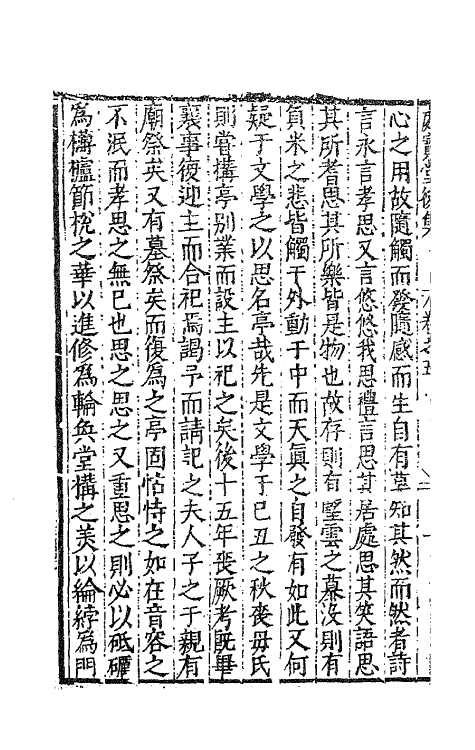 心之用故隨觸而發隨感而生自有莫知其然而然者詩
言永言孝思又言悠悠我思禮言思其居處思其笑語思
其所耆思其所樂皆是物也故存則有望雲之慕沒則有
負米之悲皆觸于外動于中而天眞之自發有如此又何
疑于文學之以思名亭哉先是文學于己丑之秋喪母氏
則嘗搆亭别業而設主以祀之矣後十五年喪厥考旣畢
襄事復迎主而合祀焉謁予而請記之夫人子之于親有
廟祭矣又有墓祭矣而復爲之亭固怙恃之如在音容之
不泯而孝思之無已也思之思之又重思之則必以砥礪
爲欂櫨節梲之華以進修爲輪奐堂搆之美以綸綍爲門